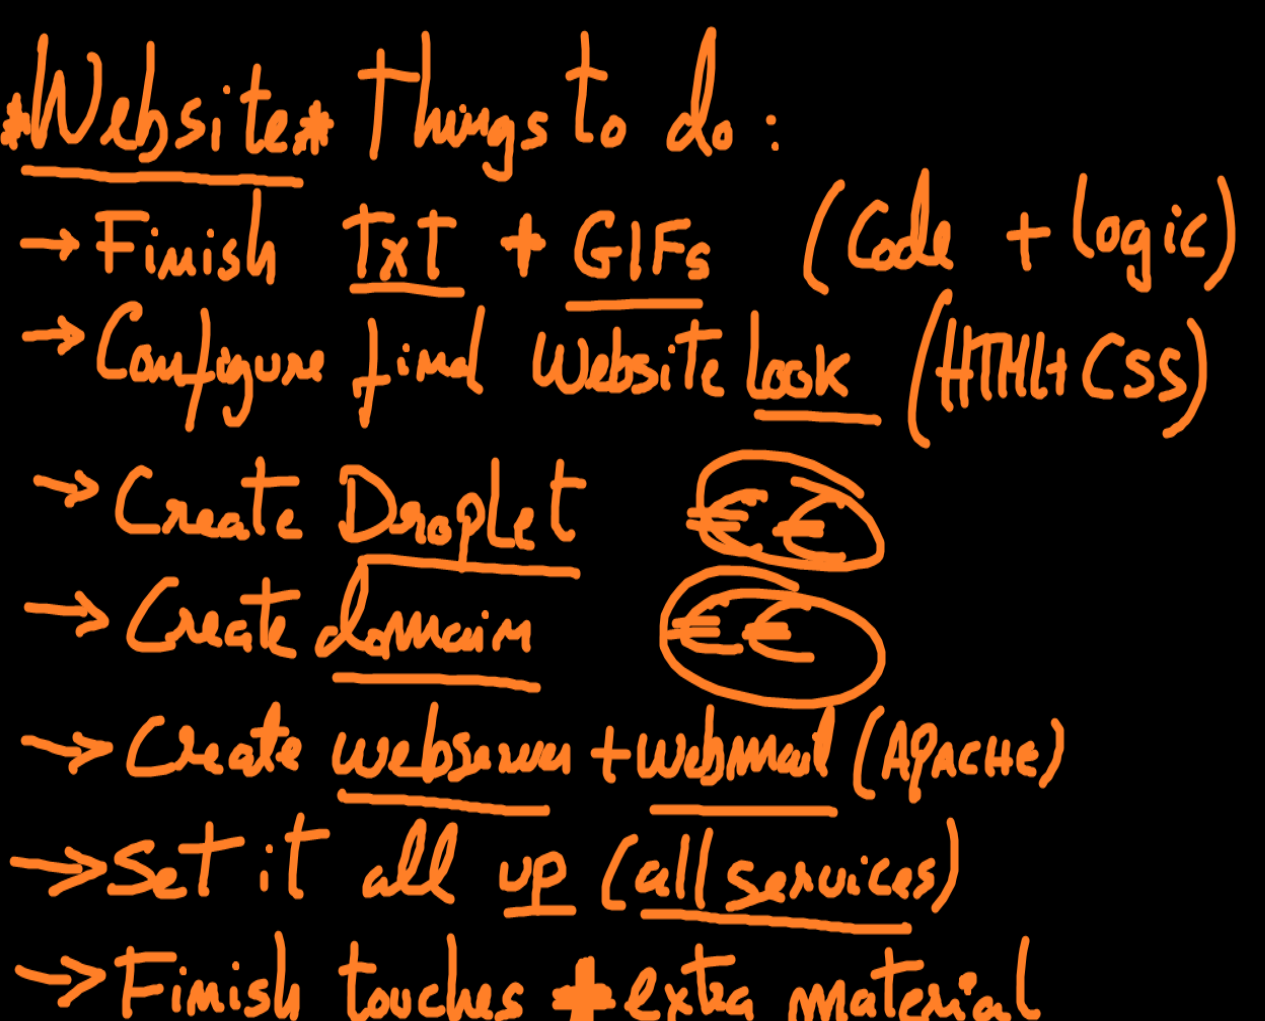 *Website* Things to do:
→ Finish Txt + GIFs (Code + logic)
→ Configure final Website look (HTML+CSS)
→ Create Droplet €€
→ Create domain €€
→ Create webserver + webmail (APACHE)
→ Set it all up (all services)
→ Finish touches + extra material